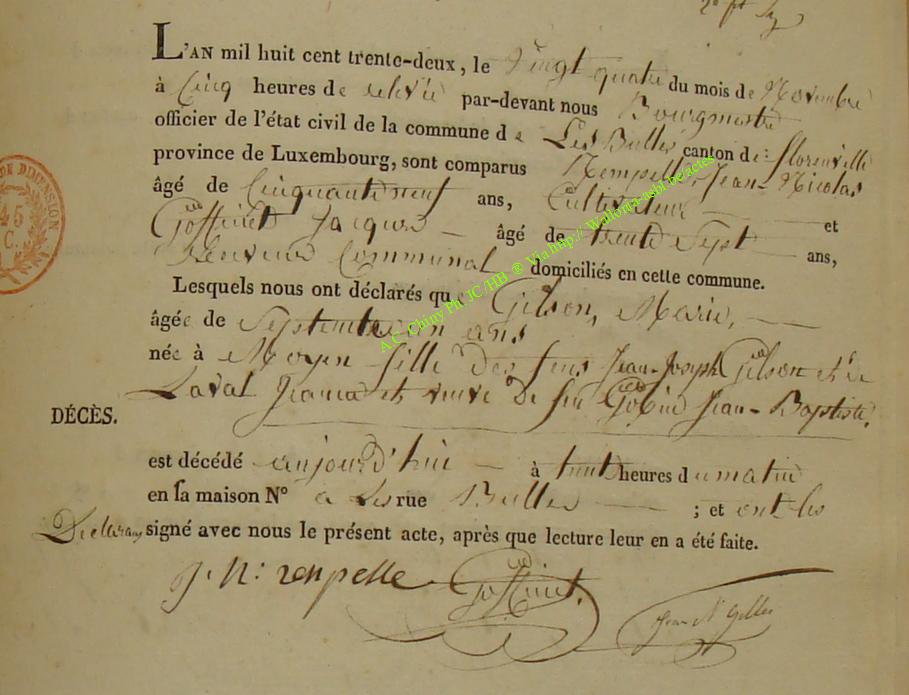 L'AN mil huit cent trente-deux, le vingt quatre du mois de Novembre
à Cinq heures de relevée par-devant nous Bourgmestre
officier de l'état civil de la commune de Les Bulles canton de florenville
province de Luxembourg, sont comparus Rempelle, Jean-Nicolas
âgé de Cinquante neuf ans, Cultivateur et
Goffinet Jacques âgé de trente Sept ans,
Receveur Communal domiciliés en cette commune.
Lesquels nous ont déclarés que Gilson, Marie,
âgée de Septante un ans
née à Moyen fille des feus Jean-Joseph Gilson et de
Laval Jeanne et veuve de feu Gobin Jean-Baptiste.
DÉCÈS.
est décédé aujourd'hui à huit heures du matin
en sa maison N° à Les rue Bulles ; et ont les
Déclarans signé avec nous le présent acte, après que lecture leur en a été faite.
J. N: rempelle Goffinet. Jean N Gilles
A.C. Chiny Ph JC/HB ® Via http://Wallonia-asbl.be/actes
45 C.